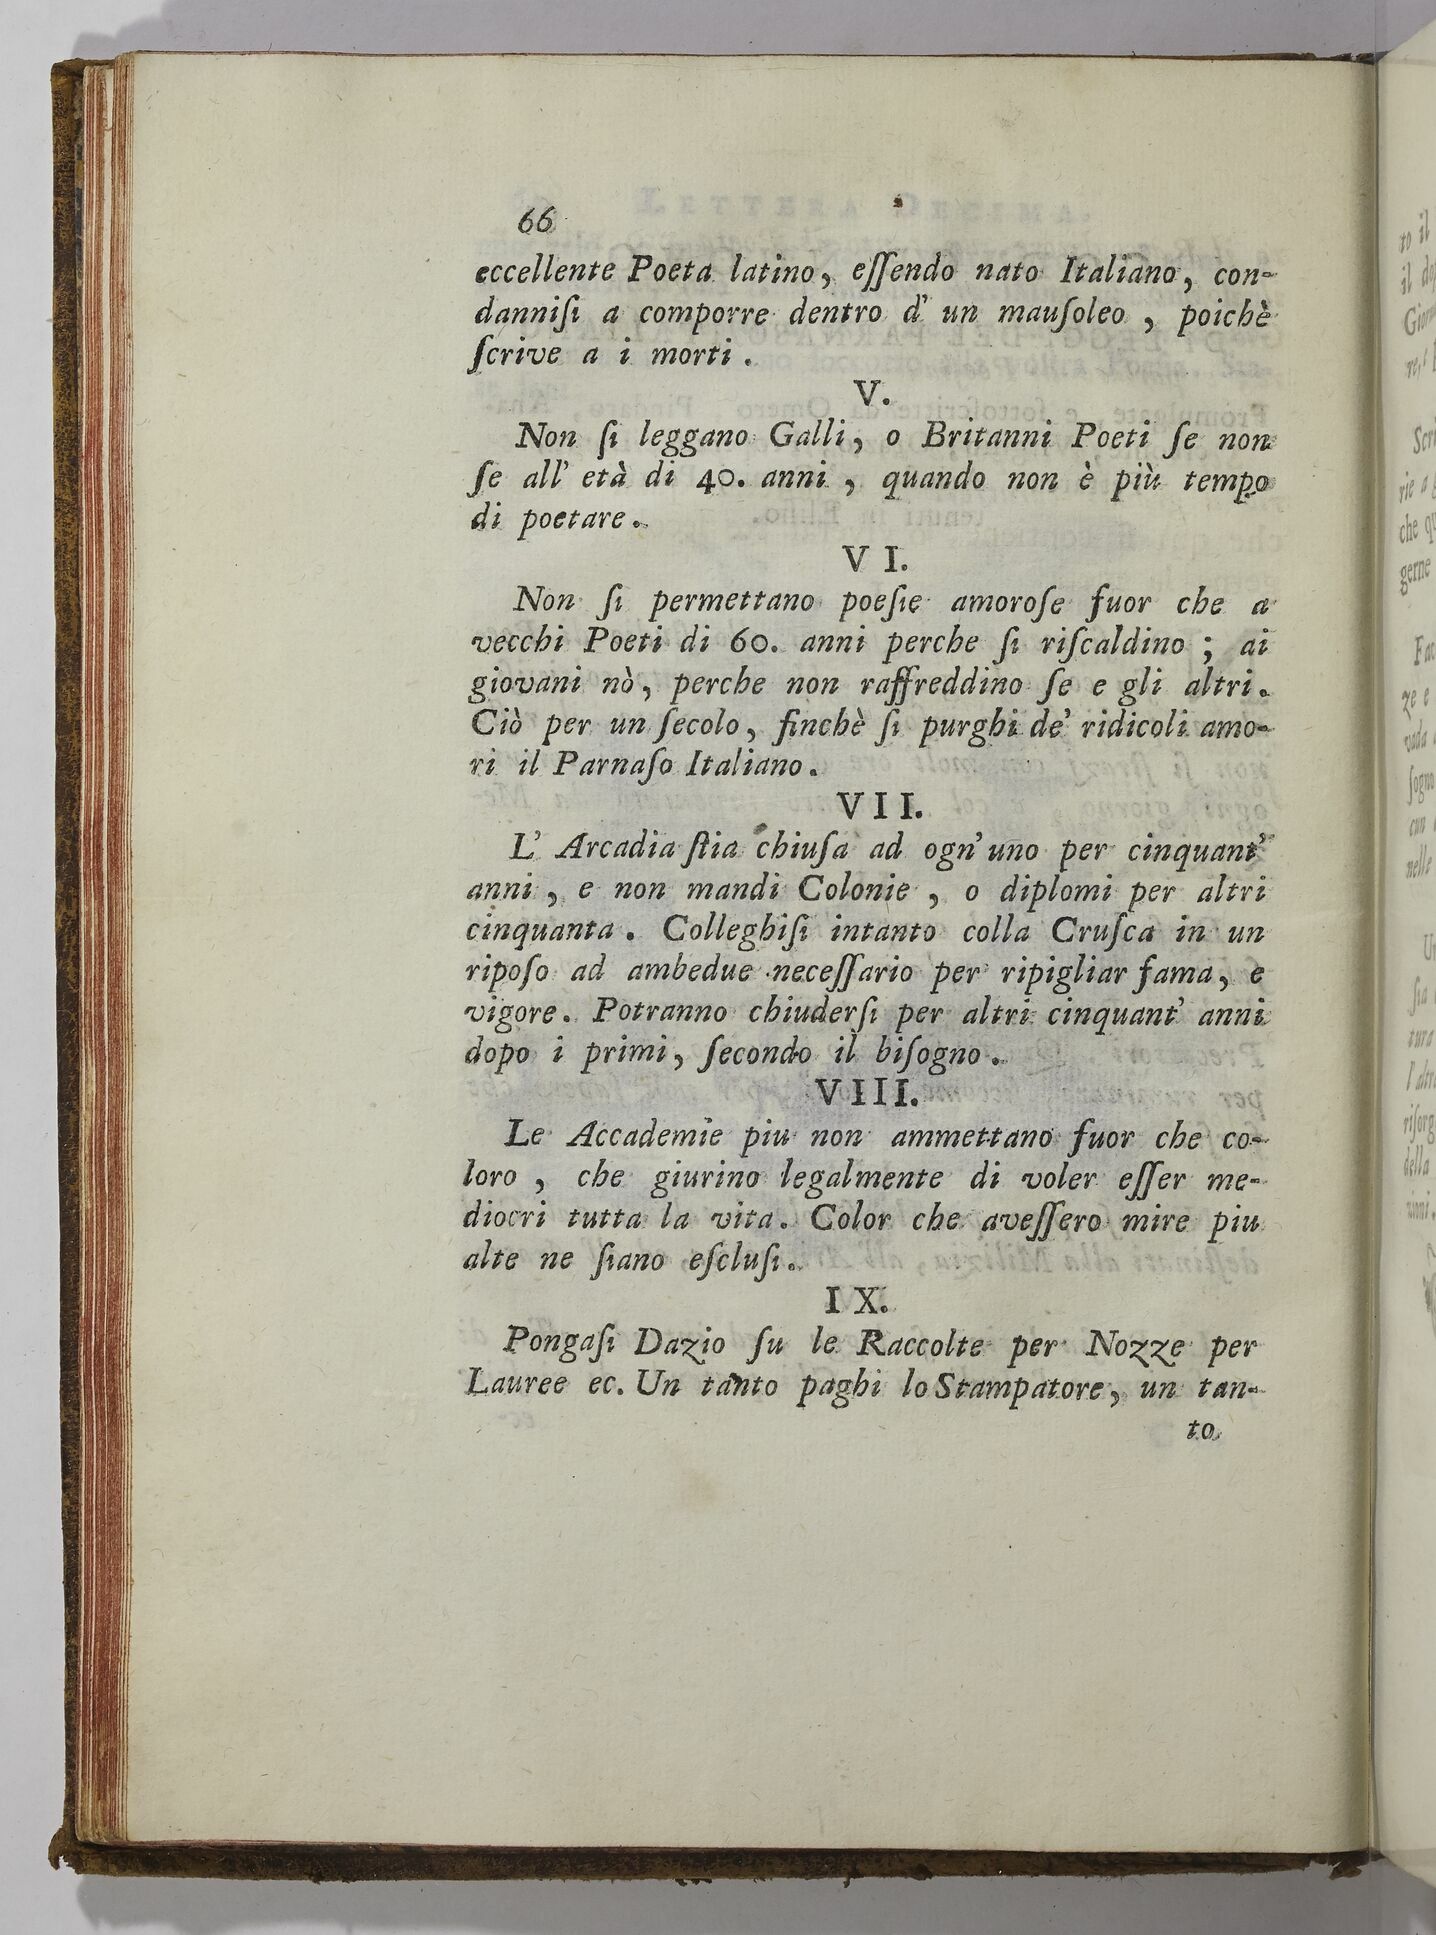 66
eccellente Poeta latino, eſſendo nato Italiano, con-
danniſi a comporre dentro d' un mauſoleo, poichè
ſcrive a i morti.
V.
Non ſi leggano Galli, o Britanni Poeti ſe non
ſe all' età di 40. anni, quando non è più tempo
di poetare.
VI.
Non ſi permettano poeſie amoroſe fuor che a
vecchi Poeti di 60. anni perche ſi riſcaldino; ai
giovani nò, perche non raffreddino ſe e gli altri.
Ciò per un ſecolo, finchè ſi purghi de' ridicoli amo-
ri il Parnaſo Italiano.
VII.
L' Arcadia ſtia chiuſa ad ogn' uno per cinquant'
anni, e non mandi Colonie, o diplomi per altri
cinquanta. Colleghiſi intanto colla Cruſca in un
ripoſo ad ambedue neceſſario per ripigliar fama, e
vigore. Potranno chiuderſi per altri cinquant' anni
dopo i primi, ſecondo il biſogno.
VIII.
Le Accademie piu non ammettano fuor che co-
loro, che giurino legalmente di voler eſſer me-
diocri tutta la vita. Color che aveſſero mire piu
alte ne ſiano eſcluſi.
IX.
Pongaſi Dazio ſu le Raccolte per Nozze per
Lauree ec. Un tanto paghi lo Stampatore, un tan-
to